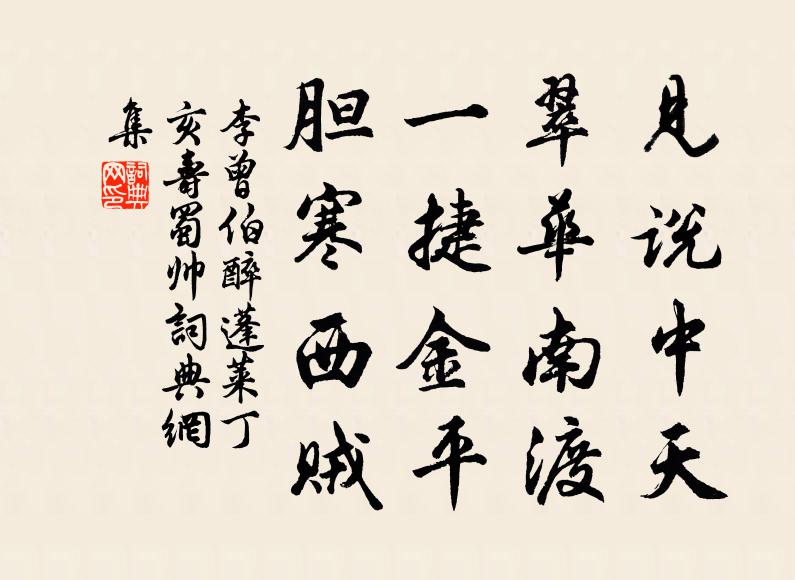 见说中天
翠华南渡
一捷金平
胆寒西贼
李曾伯醉蓬莱丁
亥寿蜀帅词典網
集
詞典
网印